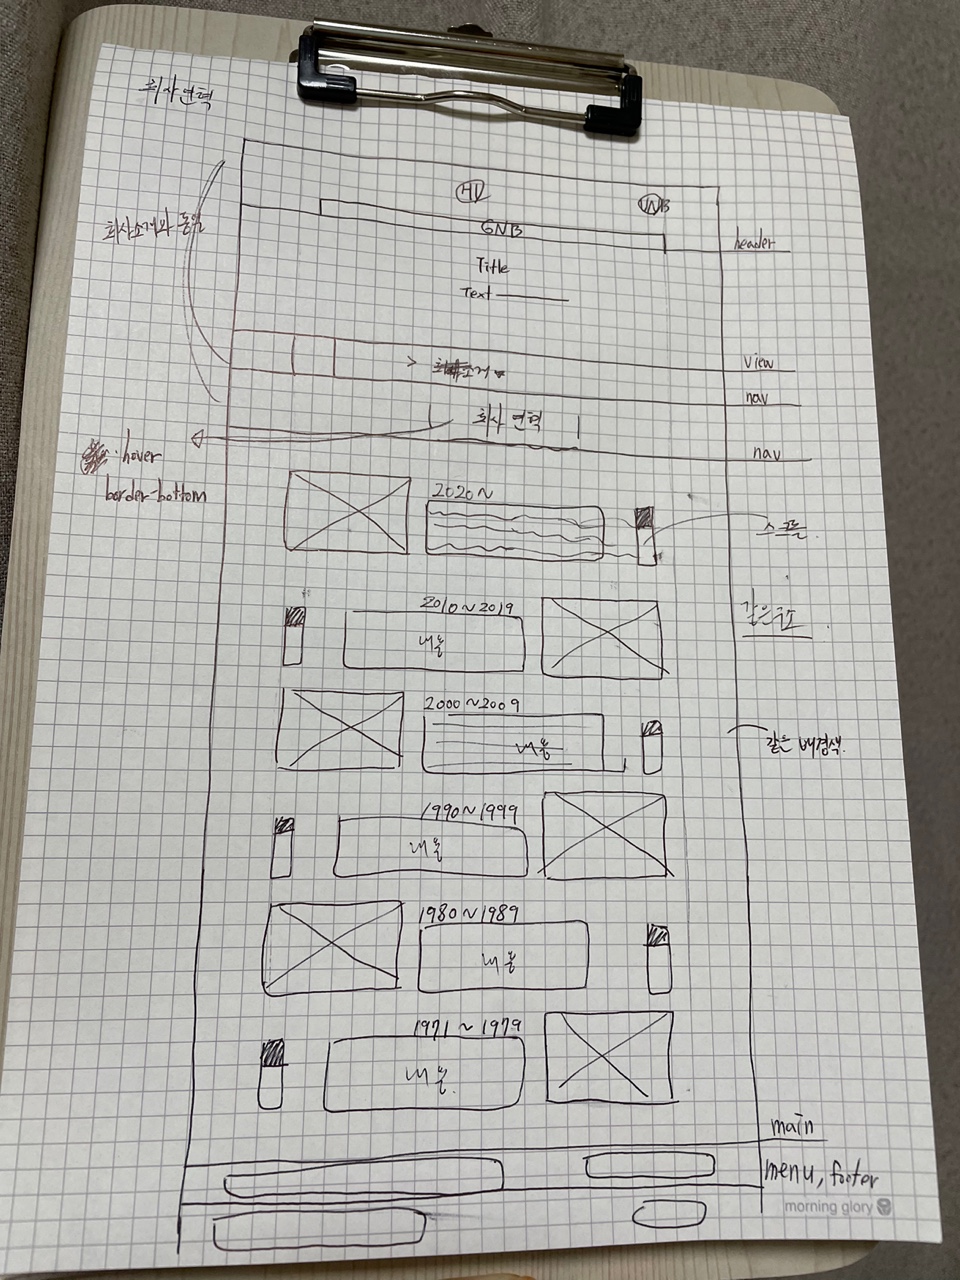 회사연혁
H1
UNB
GNB
header
회사소개와 동일
Title
Text
view
>
nav
회사 연혁
nav
:hover
border-bottom
2020~
스크롤.
2010~2019
내용
같은구조.
2000~2009
내용
같은 배경색.
1990~1999
내용
1980~1989
내용
1971~1979
내용.
main
menu, footer
morning glory